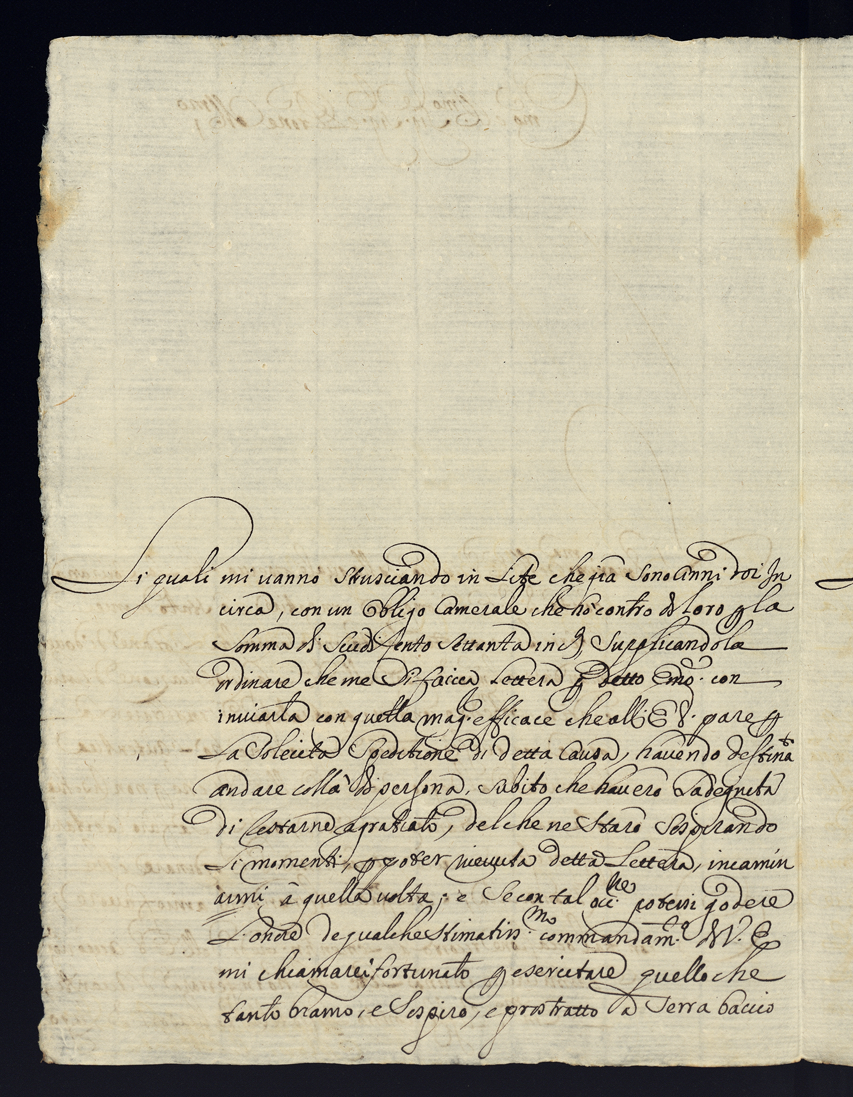 Li quali mi vanno strusciando in Lite che già sono Anni doi In
circa, con un Obligo Camerale che hò contro di loro p la
Somma di Scudi Cento Settanta in Supplicandola
ordinare che me Si faccia Lettera p detto Emo. con
inviarla con quella mag. efficace che all E. V. pare p
La Soleicita Speditione di detta Causa, havendo destinato
andare collà di persona, subito che haverò La degnità
di restarne agratiato, del che ne starò sospirando
Li momenti, p poter ricevuta detta Lettera, incamin
armi à quella volta; e Se con tal occne potessi godere
L'onore de qualche stimatissmo commandamto di V. E
mi chiamarei fortunato p esercitare quello che
tanto bramo, e Sospiro, e prostratto a Terra baccio